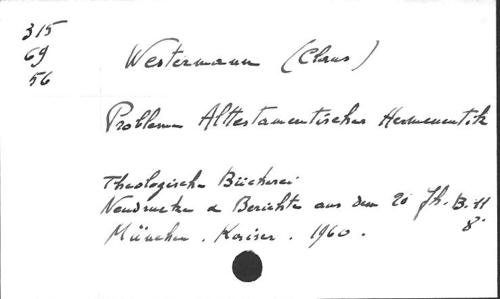 315
69
56
Westermann (Claus)
Probleme Alttestamentischer Hermeneutik
Theologische Bücherei
Neudrucke u Berichte aus dem 20 Jh. B. 11
München. Kaiser. 1960. 8°